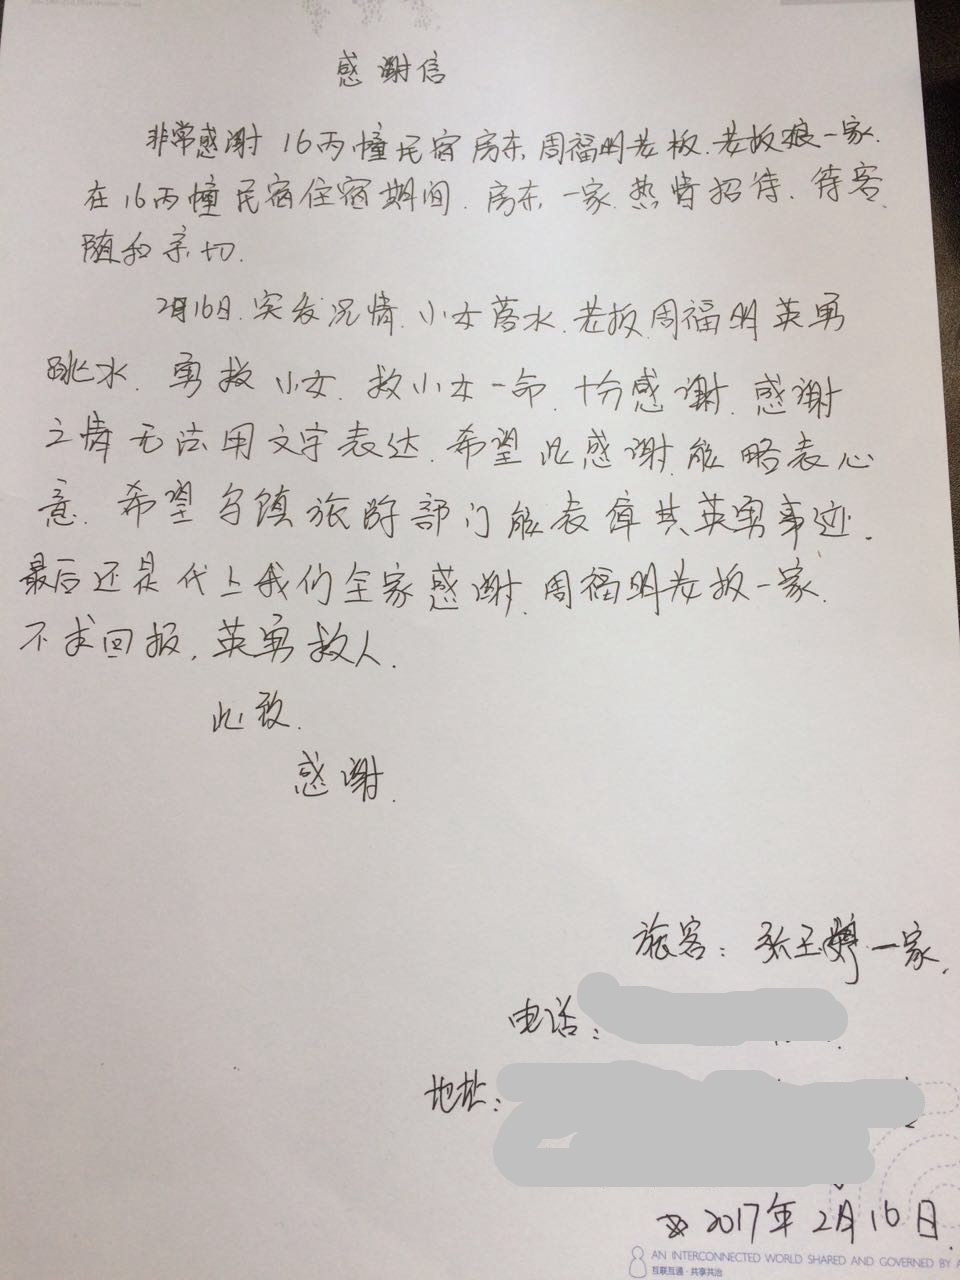 感谢信
非常感谢 16丙幢民宿房东周福明老板.老板娘一家.
在16丙幢民宿住宿期间.房东一家热情招待.待客
随和亲切.
2月16日.突发况情.小女落水.老板周福明英勇
跳水.勇救小女.救小女一命.十分感谢.感谢
之情无法用文字表达.希望此感谢能略表心
意.希望乌镇旅游部门能表障其英勇事迹.
最后还是代上我们全家感谢.周福明老板一家.
不求回报,英勇救人.
此致.
感谢.
旅客:张玉婷一家.
电话:
地址:
2017年2月16日.
AN INTERCONNECTED WORLD SHARED AND GOVERNED BY A
互联互通·共享共治